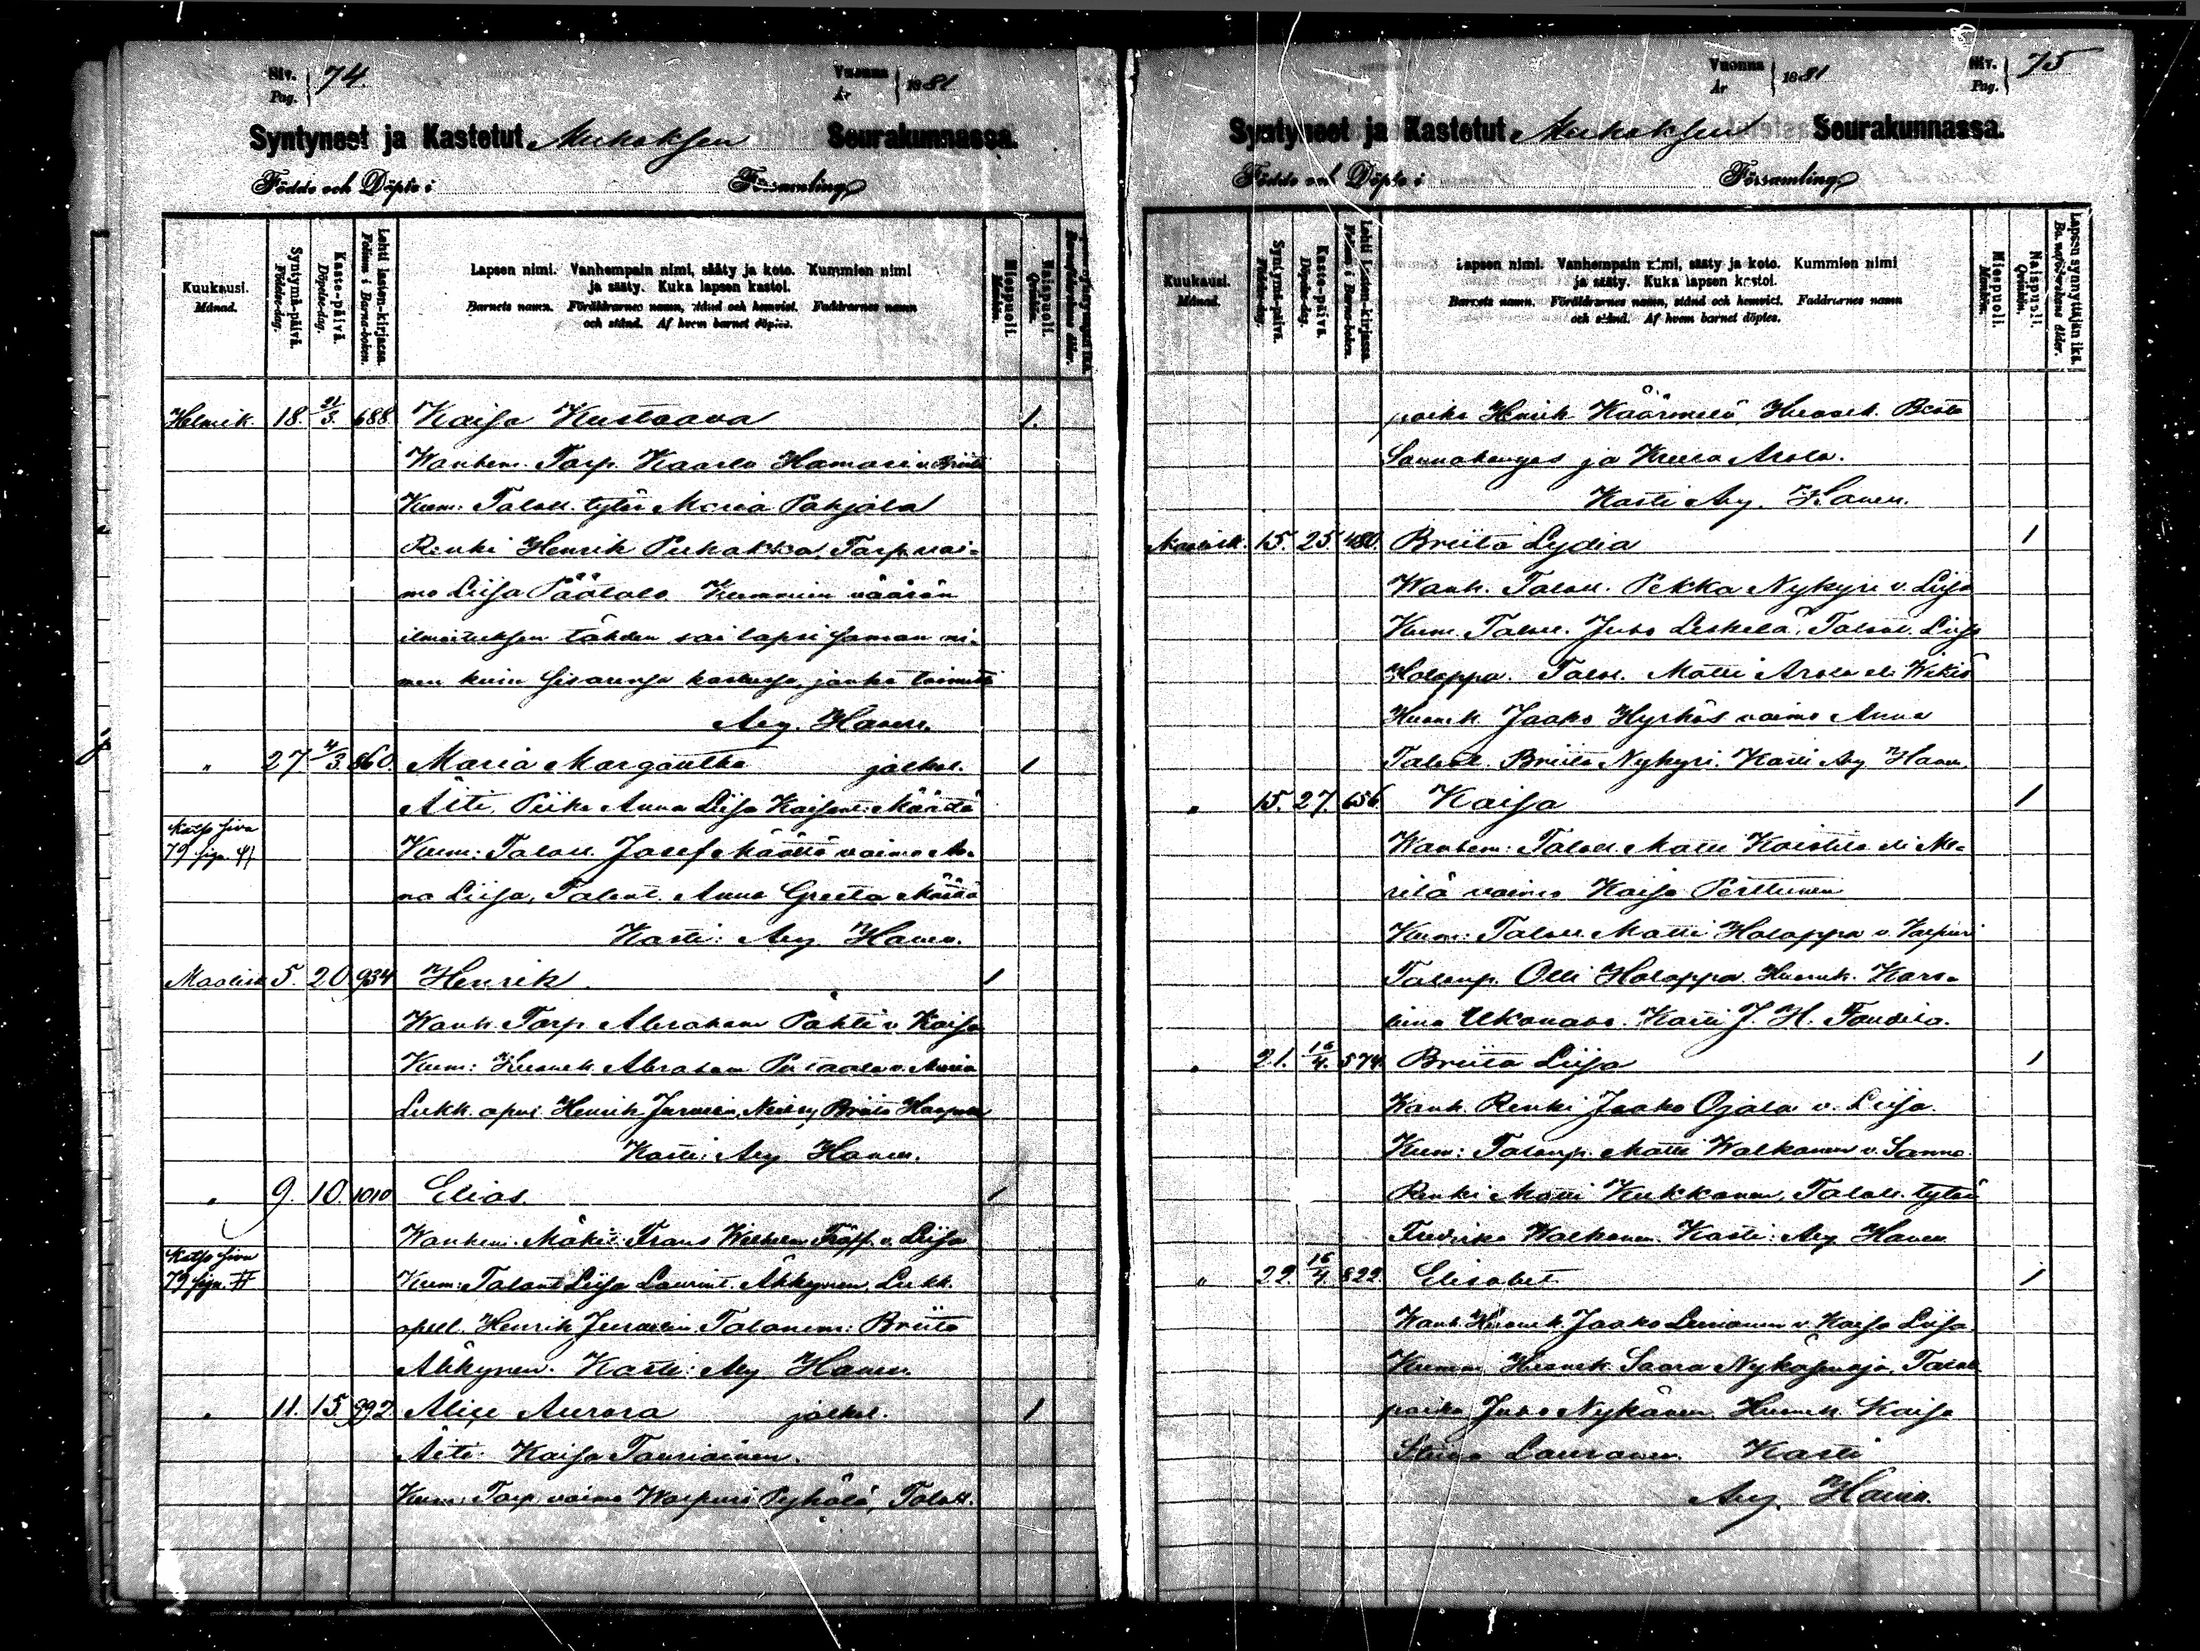 Siv. 74.
Pag.
Vuonna 1881
År
Syntyneet ja Kastetut Muhoksen Seurakunnassa.
Födde och Döpte i Församling
Kuukausi.
Månad.
Syntymä-päivä.
Födelse-dag.
Kaste-päivä.
Döpelse-dag.
Lehti lasten-kirjassa.
Folium i Barna-boken.
Lapsen nimi. Vanhempain nimi, sääty ja koto. Kummien nimi
ja sääty. Kuka lapsen kastoi.
Barnets namn. Föräldrarnes namn, stånd och hemvist. Faddrarnes namn
och stånd. Af hvem barnet döptes.
Miespuoli.
Mankön.
Naispuoli.
Qvinkön.
Helmik. 18. 21/3. 688. Kaisa Kustaava 1.
Wanhem. Torp. Kaarlo Hamari v. Briita
Kum: Taloll. tytär Maria Pohjola
Renki Henrik Pirhakka, Torp. vai-
mo Liisa Päätalo. Kummin väärän
ilmoituksen tähden sai lapsi saman ni-
men kuin sisarensa kasteessa, jonka toimitti
Aug. Haven.
" 27. 4/3. 860. Maria Margaretha jalkol. 1
Äiti, Piika Anna Liisa Kaisant. Määttä
Katso sivu
79 Kum: Taloll. Josef Määttä vaimo An-
na Liisa, Talont. Anna Greeta Määttä
Kasti: Aug. Haven.
Maalisk 5. 20. 934 Henrik. 1
Wanh. Torp. Abraham Pahti v. Kaisa
Kum: Huonek. Abraham v. Maria
Lukk. apul. Henrik Jurvelin, Neitsy Briita
Kasti: Aug. Haven.
" 9. 10. 1010 Elias. 1
Wanhem. Mäki: Frans Wilhelm v. Liisa
Katso sivu
79 Kum: Talont. Liisa Laurint. Ähkynen, Lukk.
apul. Henrik Jurvelin. Talonem: Briita
Ähkynen. Kasti: Aug. Haven.
" 11. 15. 992 Alise Aurora jalkol. 1
Äiti: Kaisa Tauriainen.
Kum: Torp. vaimo Warpuri Pyhälä, Taloll.
Vuonna 1881
År
Siv. 75
Pag.
Syntyneet ja Kastetut Muhoksen Seurakunnassa.
Födde och Döpte i Församling
Kuukausi.
Månad.
Syntymä-päivä.
Födelse-dag.
Kaste-päivä.
Döpelse-dag.
Lehti Lasten-kirjassa.
Folium i Barna-boken.
Lapsen nimi. Vanhempain nimi, sääty ja koto. Kummien nimi
ja sääty. Kuka lapsen kastoi.
Barnets namn. Föräldrarnes namn, stånd och hemvist. Faddrarnes namn
och stånd. Af hvem barnet döptes.
Miespuoli.
Mankön.
Naispuoli.
Qvinkön.
Lapsen synnyttäjän ikä.
Barnaföderskans ålder.
poika Henrik Käärmelä, Huonek. Briita
Sannakangas ja Arola.
Kasti Aug. Haven.
Maalisk. 15. 25. 480. Briita Lydia 1
Wanh. Taloll. Pekka Nykyri v. Liisa
Kum. Taloll. Juho Leskelä, Taloll. Liisa
Holappa. Taloll. Matti Arola
Huonek. Jaako Hyrkäs vaimo Anna
Taloll. Briita Nykyri. Kasti Aug. Haven.
" 15. 27. 656. Kaisa 1
Wanhem: Taloll. Matti Koistila eli Me-
rilä vaimo Kaisa Perttunen
Kum: Taloll. Matti Holappa v. Varpuri
Talonp. Olli Holappa. Huonek. Karo-
liina Ukonaho. Kasti J. H. Fandila.
" 21. 16/4. 574. Briita Liisa 1
Wanh. Renki Jaako Ojala v. Liisa.
Kum: Talonp. Matti Walkonen v. Sanna.
Renki Matti Kukkonen, Taloll. tytär
Fredrika Walkonen. Kasti: Aug. Haven
" 22. 16/4. 822. Elisabet 1
Wanh. Huonek. Jaako v. Kaisa Liisa.
Kumm. Huonek. Saara Taloll.
poika Juho Nykänen, Huonek. Kaisa
Stiina Lauronen. Kasti
Aug. Haven.